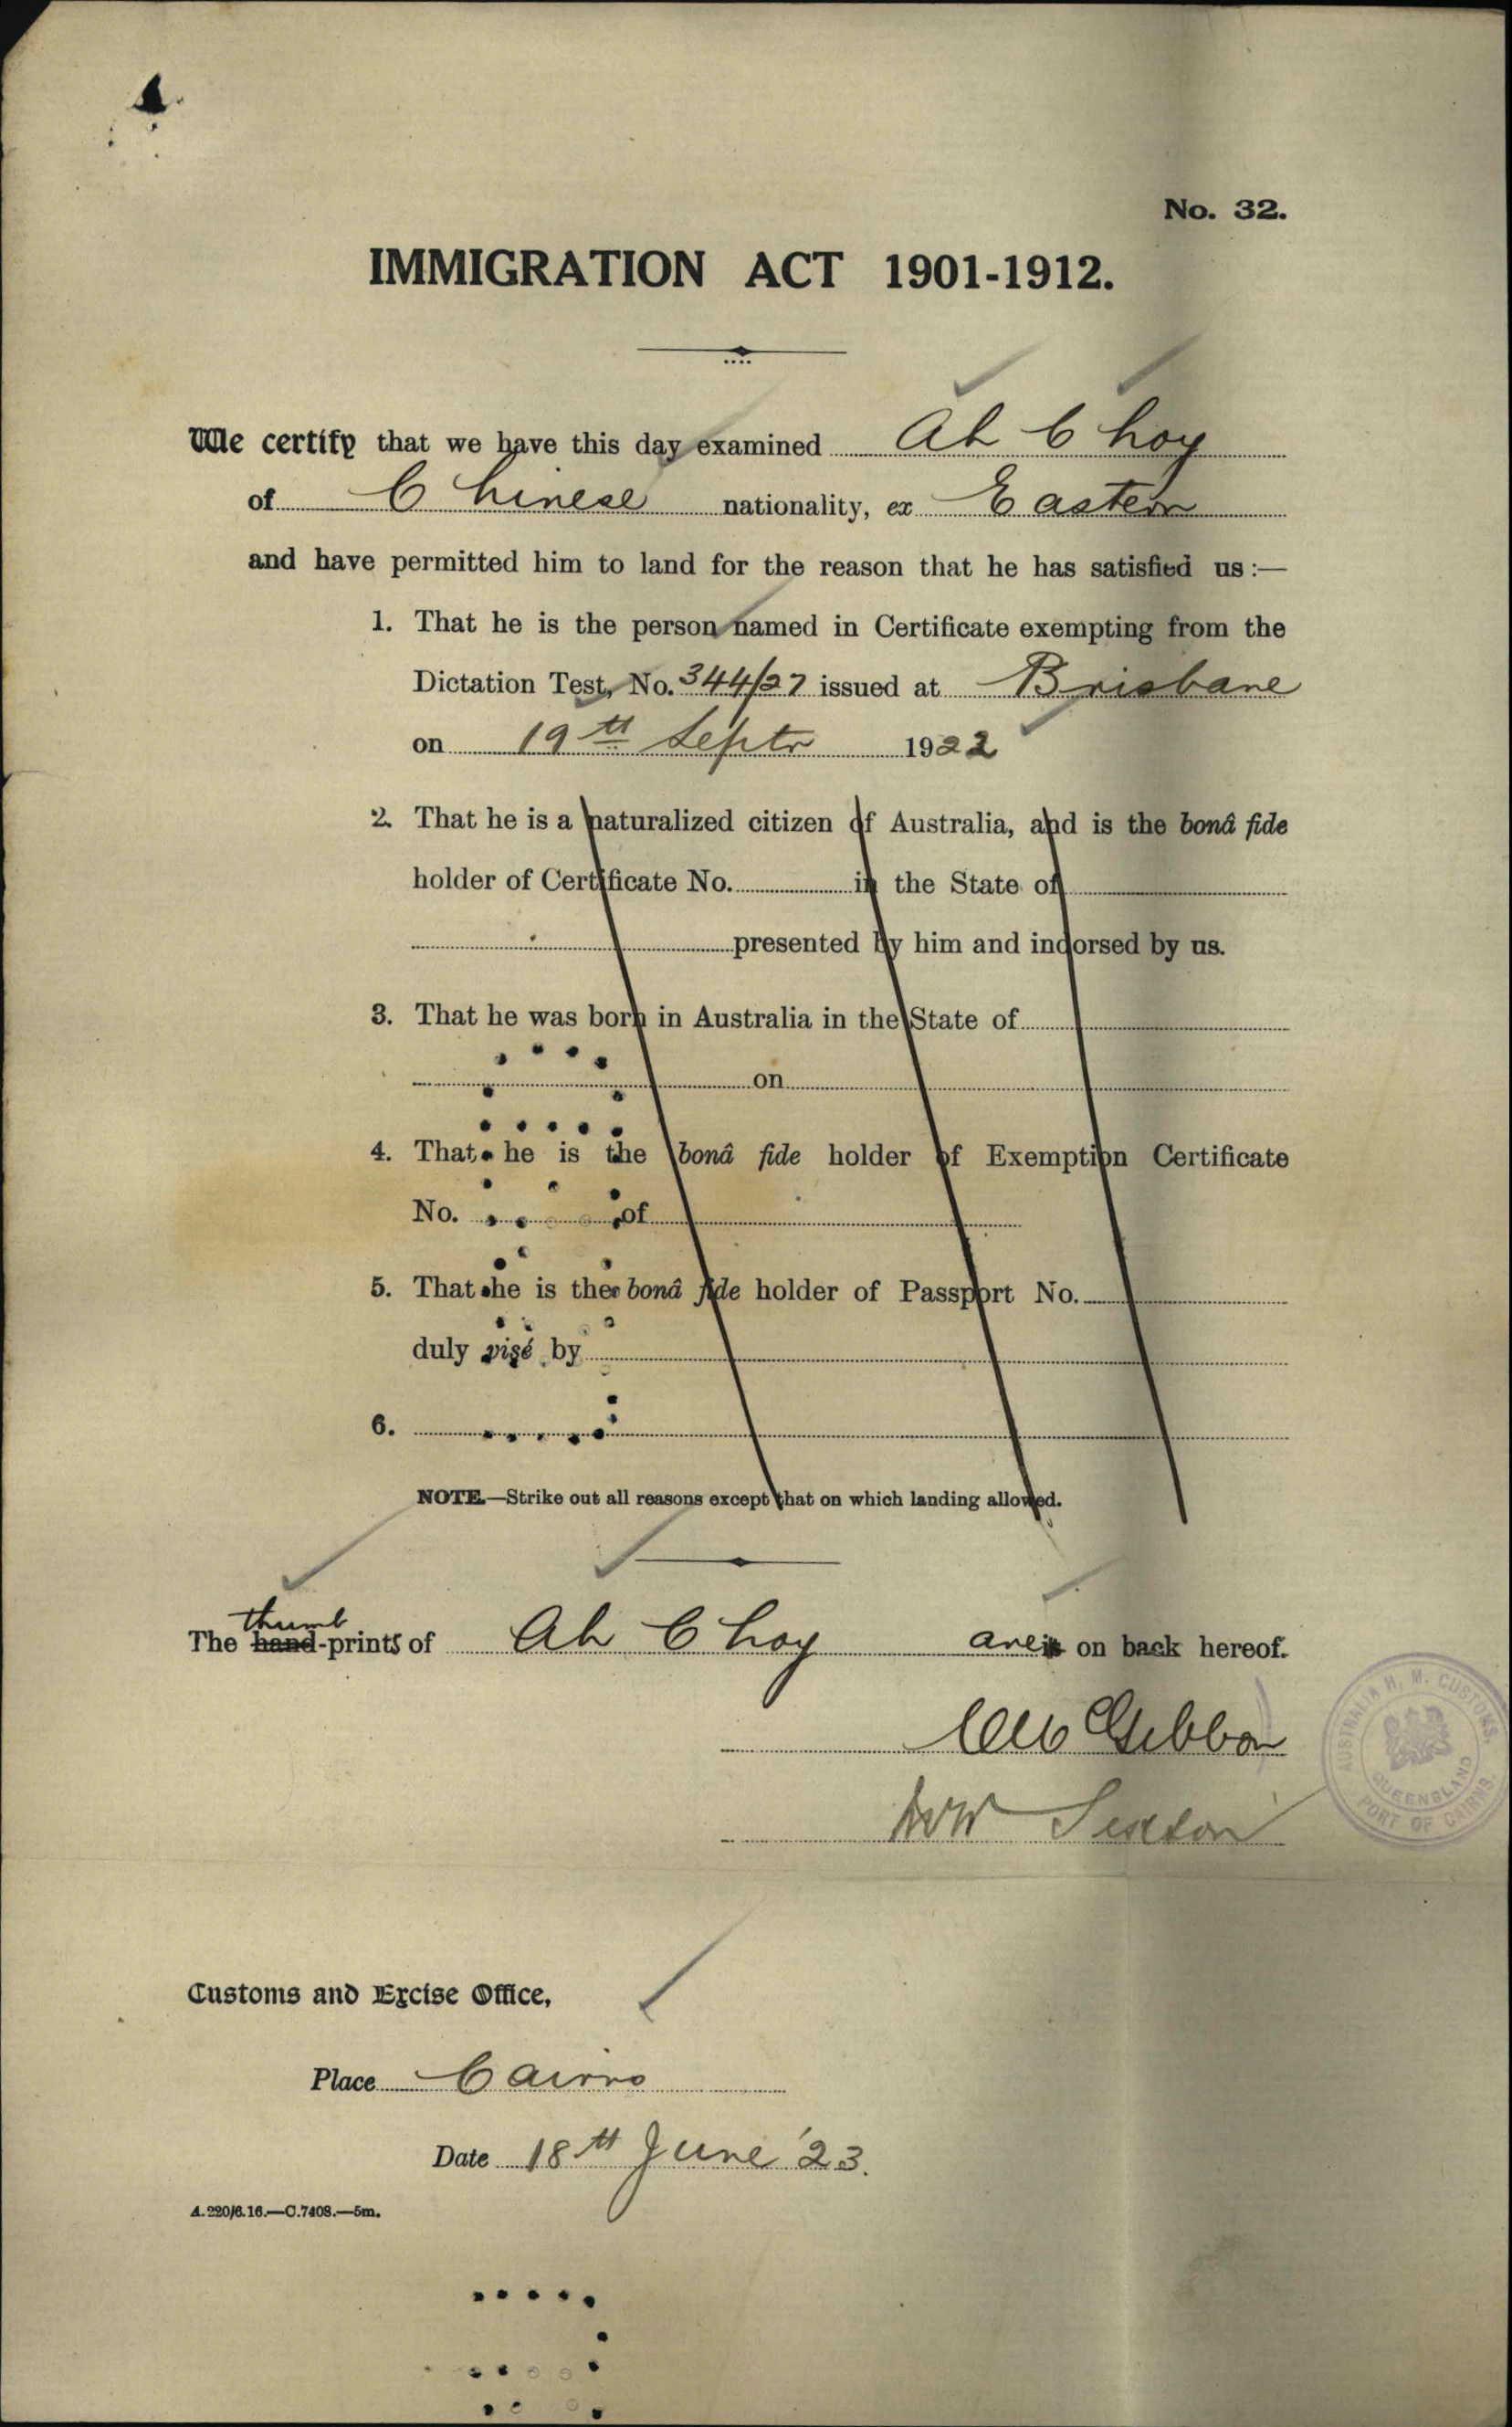 No. 32.
IMMIGRATION ACT 1901-1912.
We certify that we have this day examined Ah Choy
of Chinese nationality, ex Eastern
and have permitted him to land for the reason that he has satisfied us:—
1. That he is the person named in Certificate exempting from the
Dictation Test, No. 344/27 issued at Brisbane
on 19th Septr 1922
2. That he is a naturalized citizen of Australia, and is the bonâ fide
holder of Certificate No. in the State of
presented by him and indorsed by us.
3. That he was born in Australia in the State of
on
4. That he is the bonâ fide holder of Exemption Certificate
No. of
5. That he is the bonâ fide holder of Passport No.
duly visé by
6.
NOTE.—Strike out all reasons except that on which landing allowed.
thumb
The hand-prints of Ah Choy are is on back hereof.
Gibbon
Sexton
AUSTRALIA H. M. CUSTOMS.
QUEENSLAND
PORT OF CAIRNS.
Customs and Excise Office,
Place Cairns
Date 18th June '23.
A.220/6.16.—C.7408.—5m.